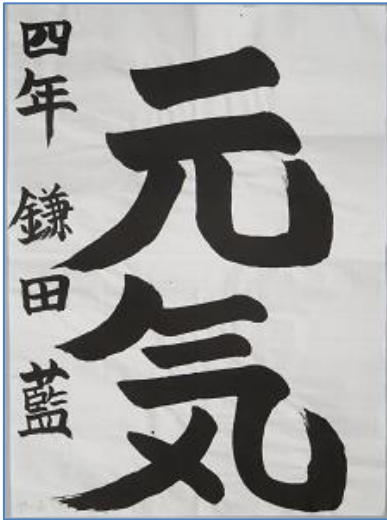 元気
四年 鎌田 藍